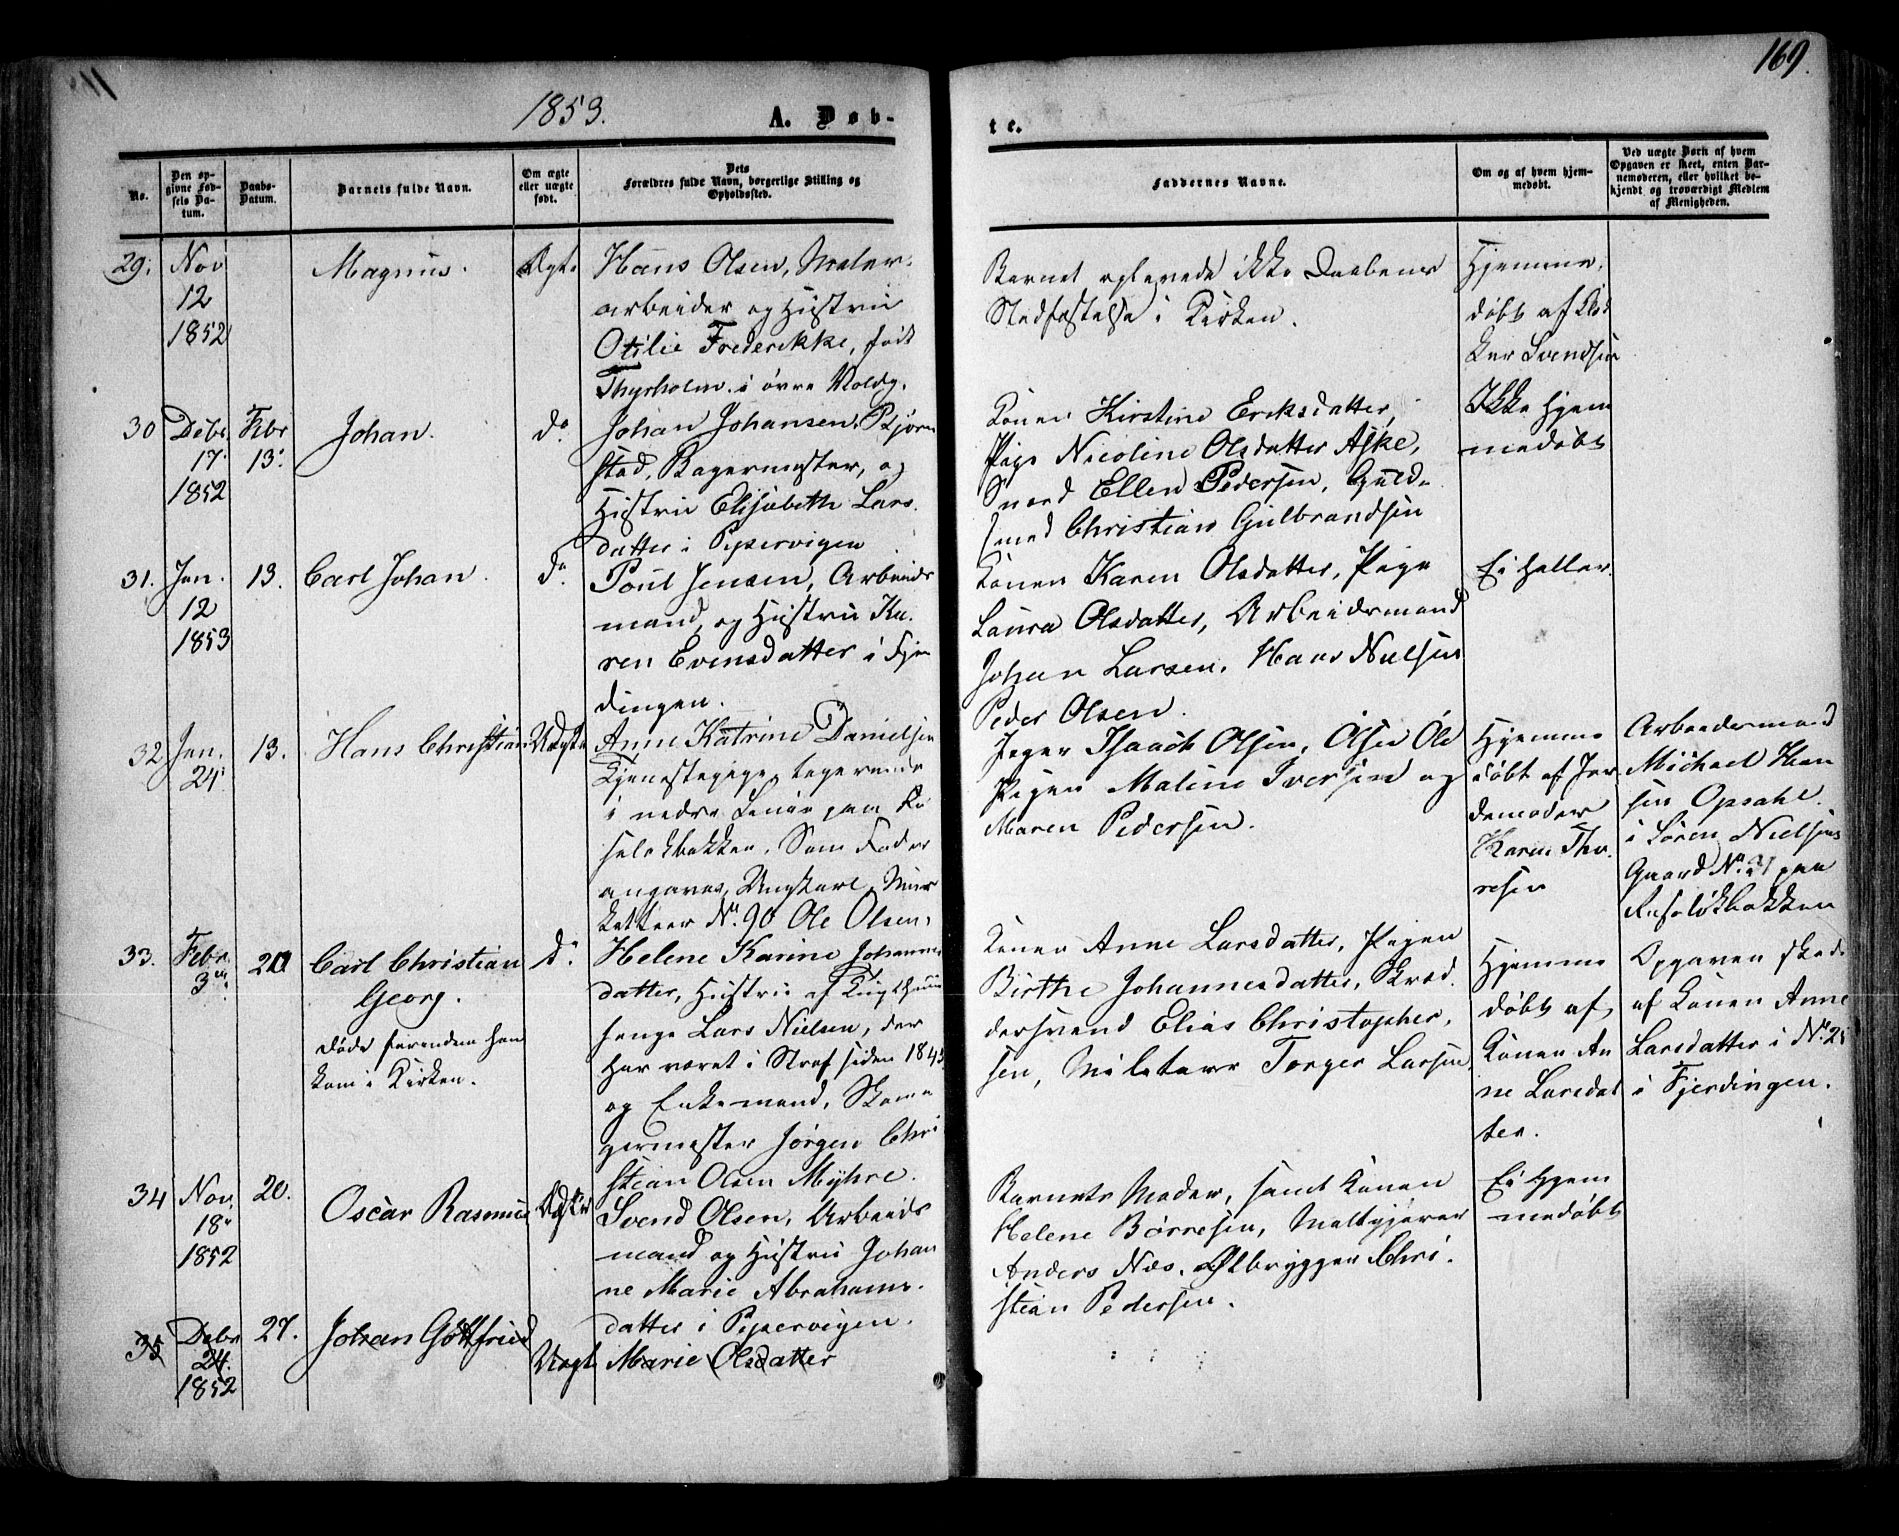 169.
1853.
A. Døb-
te.
No.
Den op-
givne Fød-
sels Da-
tum.
Daabs-
Datum.
Barnets fulde Navn.
Om ægte
eller uægte
født.
Dets
Forældres fulde Navn, borgerlige Stilling og
Opholdssted.
Faddernes Navne.
Om og af hvem hjem-
medøbt.
Ved uægte Børn af hvem
Opgaven er skeet, enten Bar-
nemoderen, eller hvilket be-
kjendt og troværdigt Medlem
af Menigheden.
29.
Nov
12
1852
Magnus.
Ægte
Hans Olsen, Maler-
arbeider og Hustru
Otilie Frederikke, født
Thyrholm i øvre Voldg.
Barnet oplevede ikke Daabens
Stadfæstelse i Kirken.
Hjemme-
døbt af Klok
ker Svendsen
30
Debr.
17.
1852
Febr
13.
Johan.
do.
Johan Johansen Bjørn
stad, Bagermester, og
Hustru Elisabeth Lars
datter i Pipervigen
Konen Kirstine Eriksdatter,
Pige Nicoline Olsdatter Aske,
Ellen Pedersen, Guld-
smed Christian Gulbrandsen
Ikke hjem
medøbt
31.
Jan.
12
1853
13.
Carl Johan.
do.
Poul Jensen, Arbeids
mand, og Hustru Ka-
ren Evensdatter i Fjer
dingen.
Konen Karen Olsdatter, Pige
Laura Olsdatter, Arbeidsmand
Johan Larsen, Hans Nielsen
Peder Olsen.
Ei heller.
32
Jan.
24.
13.
Hans Christian
Uægte
Anne Katrine Danielsen
Tjenestepige, logerende
i nedre
Som Fader
angaves, Ungkarl, Mus
ketteer No. 90 Ole Olsen.
Jæger Isaach Olsen, Olsen Ole
Pigen Maline Iversen og
Maren Pedersen.
Hjemme
døbt af Jor
demoder
Karen Tho-
resen
Arbeidsmand
Michael Han
sen Opsahl
i Søren Nielsens
Gaard No. 21 paa
Ruseløkbakken
33.
Febr.
3die
20
Carl Christian
Georg.
døde forend en han
kom i Kirken.
do.
Helene Karine Johannes
datter, Hustru af Tugthuus
fange Lars Nielsen, der
har været i Straf siden 1845
og Enkemand, Skoma
germester Jørgen Chri
stian Olsen Myhre.
Konen Anne Larsdatter, Pigen
Birthe Johannesdatter, Skræd
dersvend Elias Christopher-
sen, Militær Torger Larsen
Hjemme
døbt af
Konen An
ne Larsdat
ter.
Opgaven skede
af Konen Anne
Larsdatter i No. 25
i Fjerdingen.
34
Nov.
18
1852
20.
Oscar Rasmus
Ægte
Svend Olsen, Arbeids
mand og Hustru Johan
ne Marie Abrahams-
datter i Pipervigen.
Barnets Moder, samt Konen
Helene Børresen, Maltgjører
Anders Næs. Ølbrygger Chri-
stian Pedersen.
Ei hjem
medøbt
35
Debr
24.
1852
27.
Johan Gottfried
Uægt
Marie Olsdatter